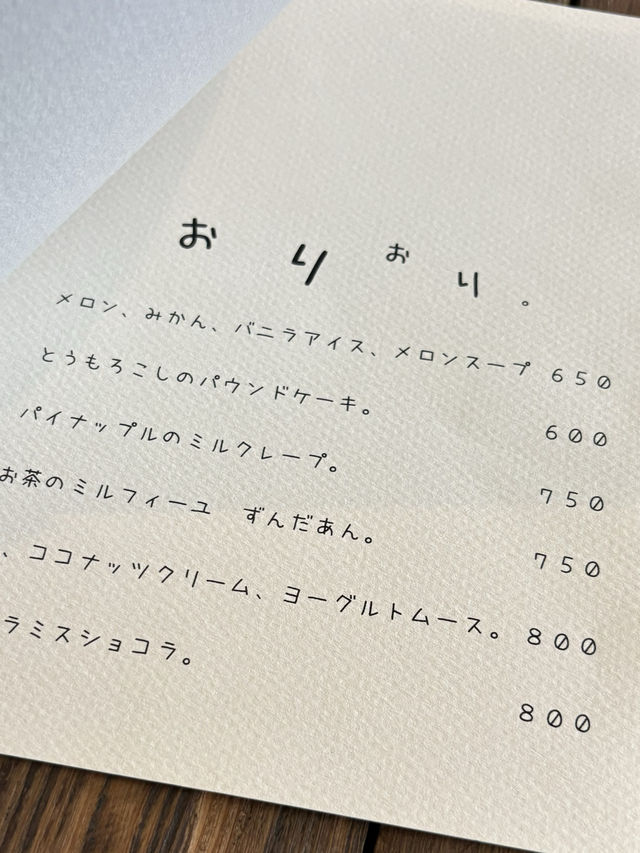 おりおり。
メロン、みかん、バニラアイス、メロンスープ 650
とうもろこしのパウンドケーキ。 600
パイナップルのミルクレープ。 750
お茶のミルフィーユ ずんだあん。 750
、ココナッツクリーム、ヨーグルトムース。 800
ラミスショコラ。 800